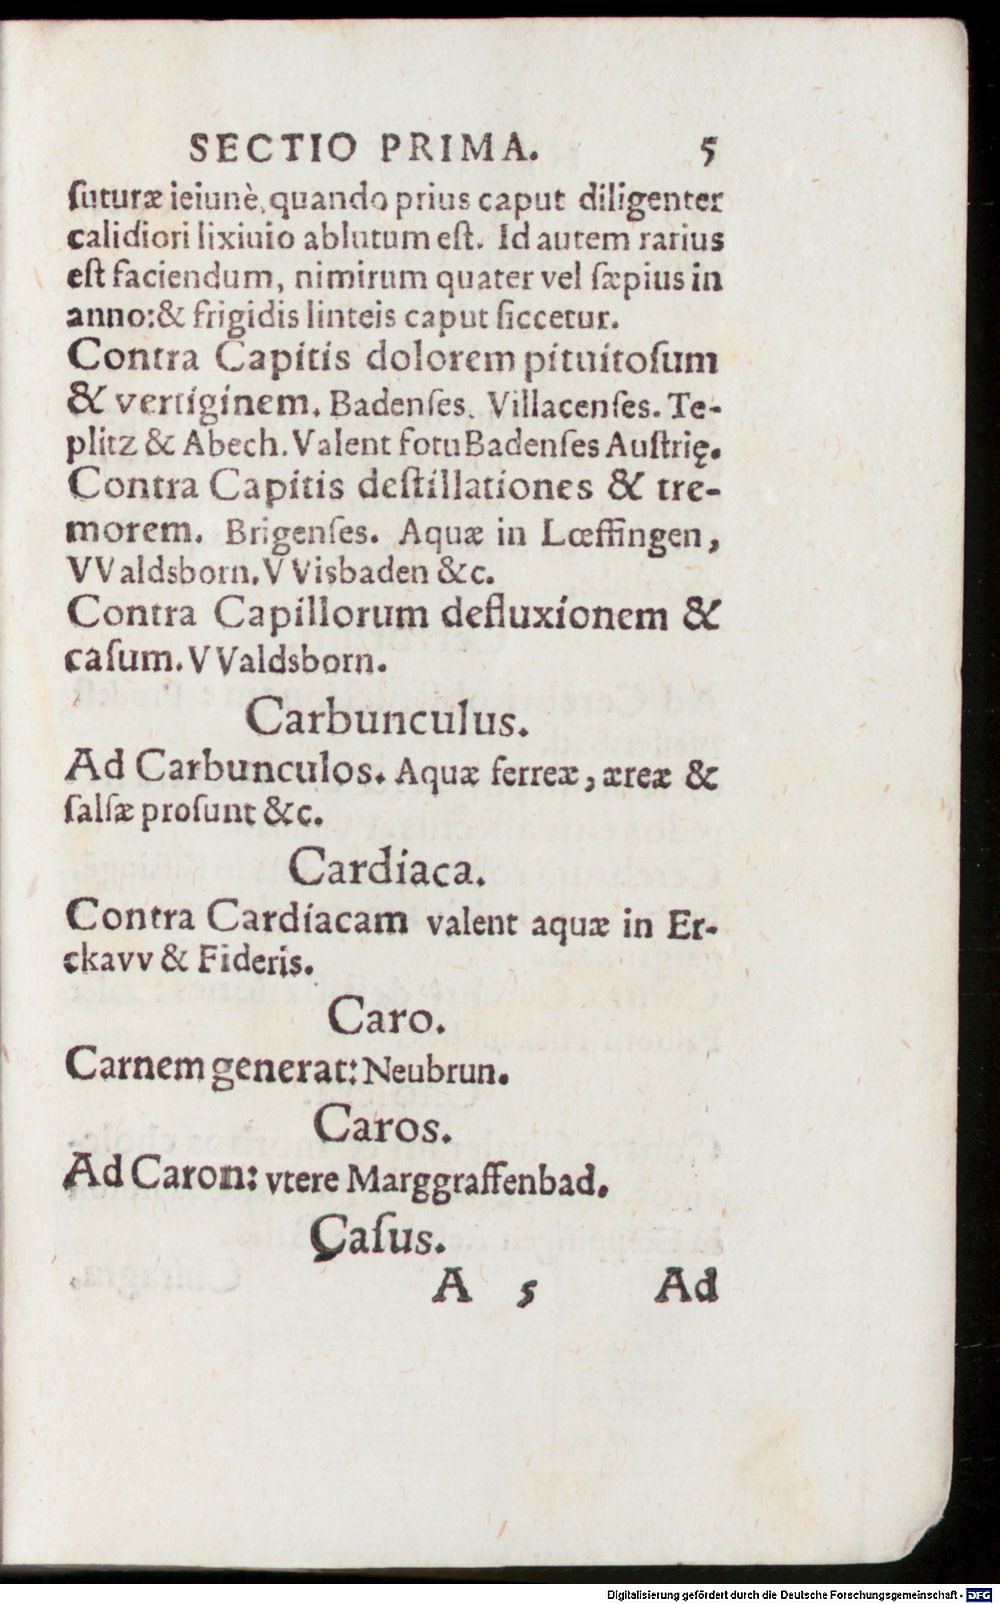 SECTIO PRIMA. 5
ſuturæ ieiunè, quando prius caput diligenter
calidiori lixiuio ablutum eſt. Id autem rarius
eſt faciendum, nimirum quater vel ſæpius in
anno: & frigidis linteis caput ſiccetur.
Contra Capitis dolorem pituitoſum
& vertiginem. Badenſes. Villacenſes. Te-
plitz & Abech. Valent fotu Badenſes Auſtrię.
Contra Capitis deſtillationes & tre-
morem. Brigenſes. Aquæ in Lœffingen,
VValdsborn. VVisbaden &c.
Contra Capillorum defluxionem &
caſum. VValdsborn.
Carbunculus.
Ad Carbunculos. Aquæ ferreæ, æreæ &
ſalſæ proſunt &c.
Cardiaca.
Contra Cardiacam valent aquæ in Er-
ckavv & Fideris.
Caro.
Carnem generat: Neubrun.
Caros.
Ad Caron: vtere Marggraffenbad.
Caſus.
A 5 Ad
Digitalisierung gefördert durch die Deutsche Forschungsgemeinschaft - DFG